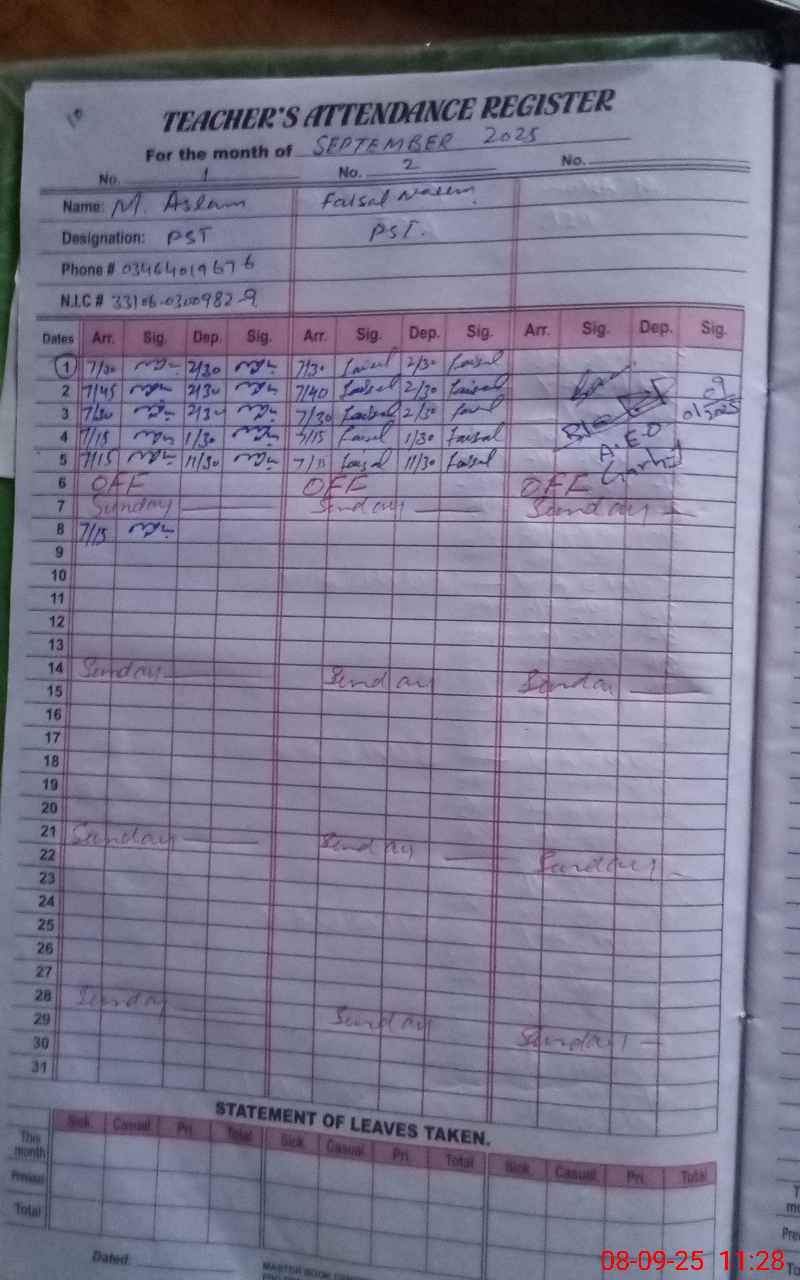 TEACHER'S ATTENDANCE REGISTER
For the month of SEPTEMBER 2025
No. 1 No. 2 No.
Name: M. Aslam Faisal Naeem
Designation: PST PST.
Phone # 03464019676
N.I.C # 33106-0300982-9
Dates Arr. Sig. Dep. Sig. Arr. Sig. Dep. Sig. Arr. Sig. Dep. Sig.
1 7/30 2/30 7/30 Faisal 2/30 Faisal
2 7/45 2/30 7/40 Faisal 2/30 Faisal 09
3 7/30 2/30 7/30 Faisal 2/30 Faisal 01/2025
4 7/15 1/30 7/15 Faisal 1/30 Faisal A.E.O
5 7/15 11/30 7/15 Faisal 11/30 Faisal
6 OFF OFF OFF
7 Sunday Sunday Sunday
8 7/15
9
10
11
12
13
14 Sunday Sunday Sunday
15
16
17
18
19
20
21 Sunday Sunday
22 Sunday
23
24
25
26
27
28 Sunday
29 Sunday
30 Sunday
31
STATEMENT OF LEAVES TAKEN.
Sick Casual Pri. Total Sick Casual Pri. Total Sick Casual Pri. Total
This month
Previous
Total
Dated:
08-09-25 11:28